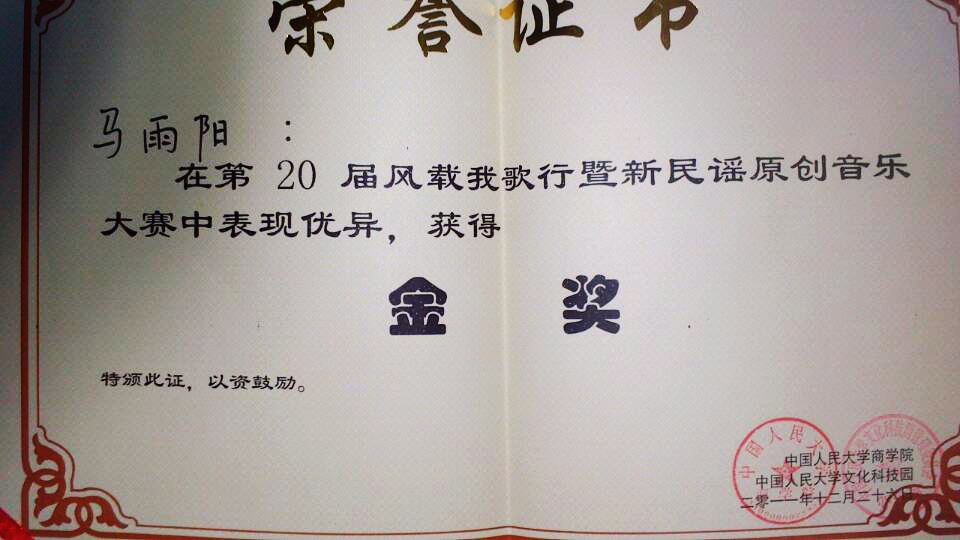 荣誉证书
马雨阳 :
在第 20 届风载我歌行暨新民谣原创音乐
大赛中表现优异，获得
金 奖
特颁此证，以资鼓励。
中国人民大学商学院
中国人民大学文化科技园
二零一一年十二月二十六日